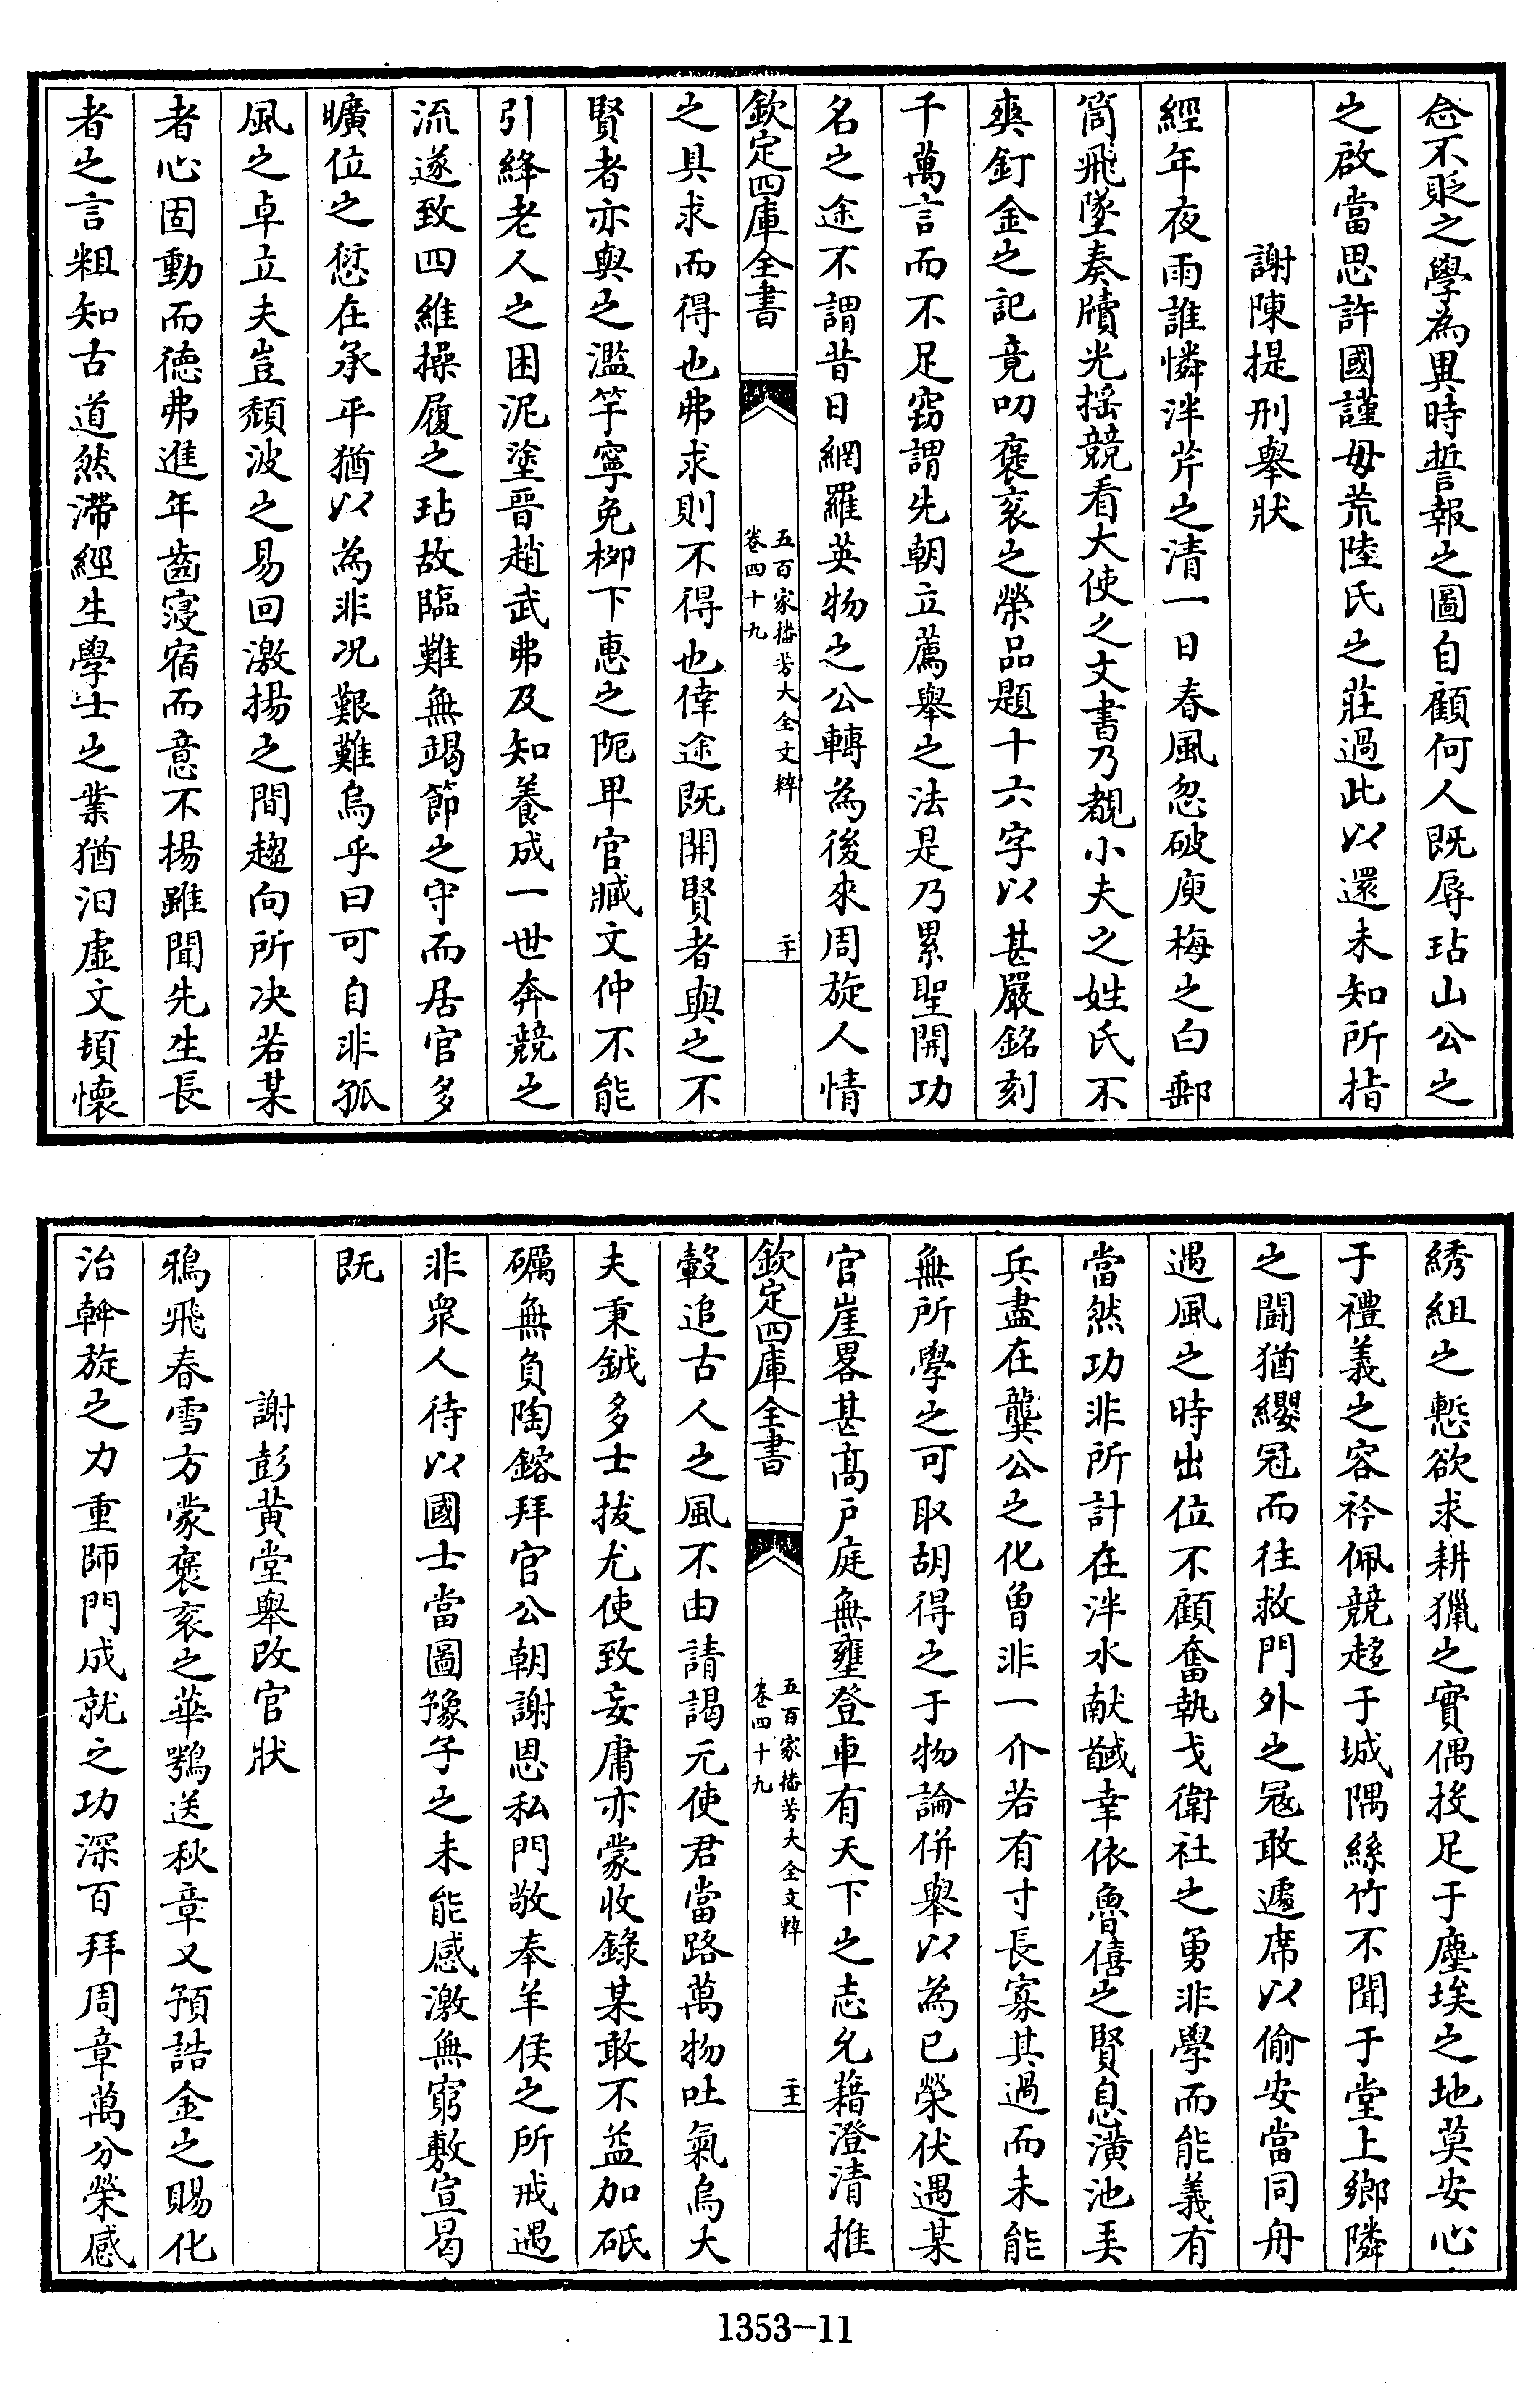 念不貶之學為異時誓報之圖自顧何人既辱玷山公之
之啟當思許國謹毋荒陸氏之莊過此以還未知所指
謝陳提刑舉狀
經年夜雨誰憐泮芹之清一日春風忽破庾梅之白郵
筒飛墜奏牘光搖競看大使之文書乃覩小夫之姓氏不
爽釘金之記竟叨褒衮之榮品題十六字以甚嚴銘刻
千萬言而不足竊謂先朝立薦舉之法是乃累聖開功
名之途不謂昔日網羅英物之公轉為後來周旋人情
欽定四庫全書
五百家播芳大全文粹
卷四十九
二十
之具求而得也弗求則不得也倖途既開賢者與之不
賢者亦與之濫竽寧免栁下惠之阨卑官臧文仲不能
引絳老人之困泥塗晉趙武弗及知養成一世奔競之
流遂致四維操履之玷故臨難無竭節之守而居官多
曠位之愆在承平猶以為非况艱難烏乎曰可自非孤
風之卓立夫豈頹波之易回激揚之間趨向所决若某
者心固動而徳弗進年齒寖宿而意不揚雖聞先生長
者之言粗知古道然滯經生學士之業猶汩虚文頃懷
綉組之慙欲求耕獵之實偶投足于塵埃之地莫安心
于禮義之容衿佩競趍于城隅絲竹不聞于堂上鄉隣
之鬪猶纓冠而往救門外之冦敢遽席以偷安當同舟
遇風之時出位不顧奮執戈衛社之勇非學而能義有
當然功非所計在泮水献馘幸依魯僖之賢息潢池弄
兵盡在龔公之化曾非一介若有寸長寡其過而未能
無所學之可取胡得之于物論併舉以為已榮伏遇某
官崖畧甚髙户庭無壅登車有天下之志允藉澄清推
欽定四庫全書
五百家播芳大全文粹
卷四十九
二十一
轂追古人之風不由請謁元使君當路萬物吐氣烏大
夫秉鉞多士拔尤使致妄庸亦蒙收錄某敢不益加砥
礪無負陶鎔拜官公朝謝恩私門敬奉羊侯之所戒遇
非衆人待以國士當圖豫子之未能感激無窮敷宣曷
既
謝彭黄堂舉改官狀
鴉飛春雪方蒙褒衮之華鶚送秋章又預誥金之賜化
治斡旋之力重師門成就之功深百拜周章萬分榮感
1353-11